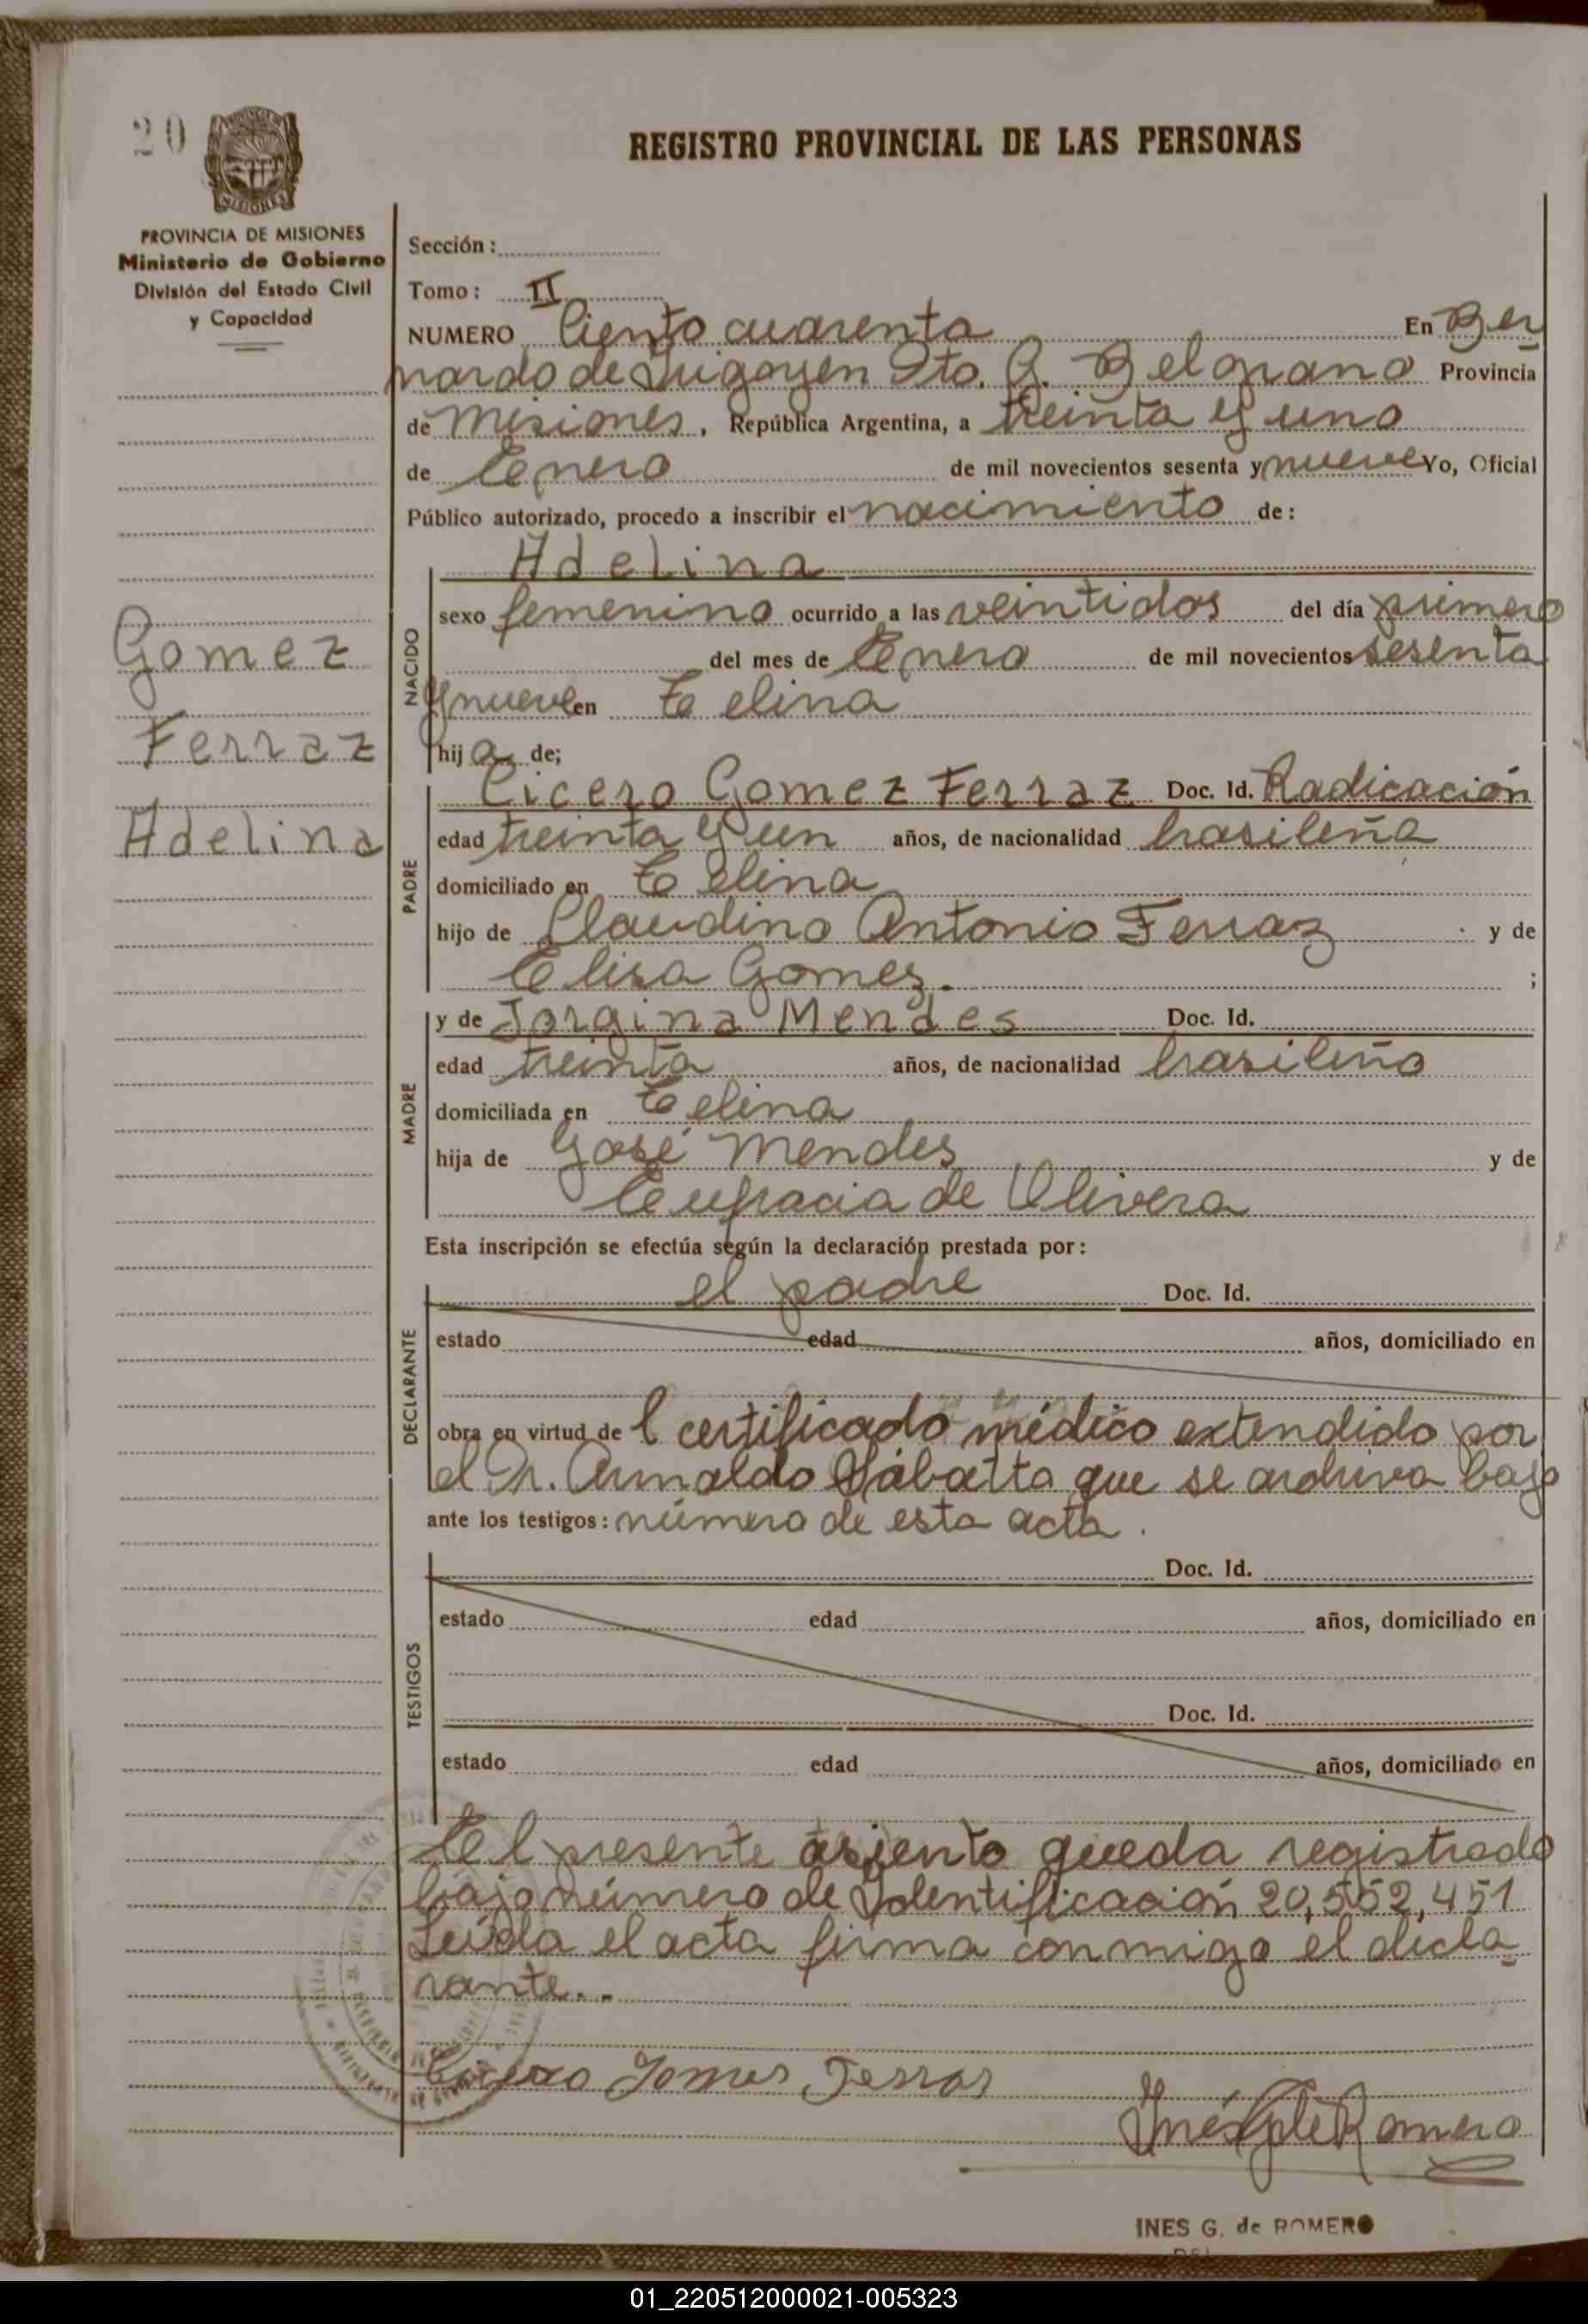 20
REGISTRO PROVINCIAL DE LAS PERSONAS
MISIONES
PROVINCIA DE MISIONES
Ministerio de Gobierno
División del Estado Civil
y Capacidad
Sección:
Tomo: II
NUMERO Ciento cuarenta En Ber
nardo de Irigoyen Dto. G. Belgrano Provincia
de Misiones, República Argentina, a treinta y uno
de Enero de mil novecientos sesenta y nueve Yo, Oficial
Público autorizado, procedo a inscribir el nacimiento de:
Adelina
sexo femenino ocurrido a las veintidos del día primero
del mes de Enero de mil novecientos sesenta
y nueve en Celina
hija de;
NACIDO
Gomez
Ferraz
Adelina
Cicero Gomez Ferraz Doc. Id. Radicación
edad treinta y un años, de nacionalidad brasileña
domiciliado en Celina
hijo de Claudino Antonio Ferraz y de
Elisa Gomez. ;
PADRE
y de Jorgina Mendes Doc. Id.
edad treinta años, de nacionalidad brasileña
domiciliada en Celina
hija de José Mendes y de
Eufracia de Olivera
MADRE
Esta inscripción se efectúa según la declaración prestada por:
el padre Doc. Id.
estado edad años, domiciliado en
obra en virtud de l certificado médico extendido por
el Dr. Arnaldo Sabatta que se archiva bajo
DECLARANTE
ante los testigos: número de esta acta.
Doc. Id.
estado edad años, domiciliado en
Doc. Id.
estado edad años, domiciliado en
TESTIGOS
El presente asiento queda registrado
bajo número de Identificación 20,552,451
Leída el acta firma conmigo el decla
rante..
Cicero Gomes Ferras
Inés G de Romero
INES G. de ROMERO
01_220512000021-005323